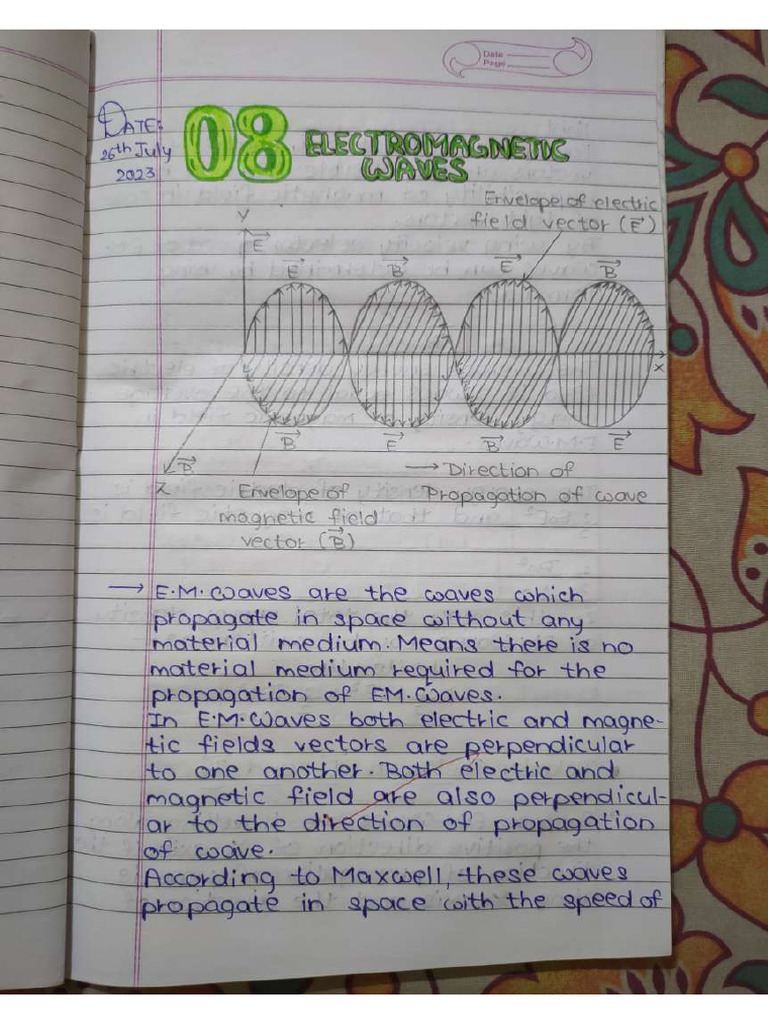 Date
Page
DATE:
26th July
2023
08 ELECTROMAGNETIC
WAVES
Envelope of electric
field vector (E⃗)
Y
E⃗
E⃗
B⃗
E⃗
B⃗
X
B⃗
E⃗
B⃗
E⃗
B⃗
Z
→ Direction of
Propagation of wave
Envelope of
magnetic field
vector (B⃗)
→ E.M. waves are the waves which
propagate in space without any
material medium. Means there is no
material medium required for the
propagation of EM. Waves.
In E.M. Waves both electric and magne-
tic fields vectors are perpendicular
to one another. Both electric and
magnetic field are also perpendicul-
ar to the direction of propagation
of wave.
According to Maxwell, these waves
propagate in space with the speed of